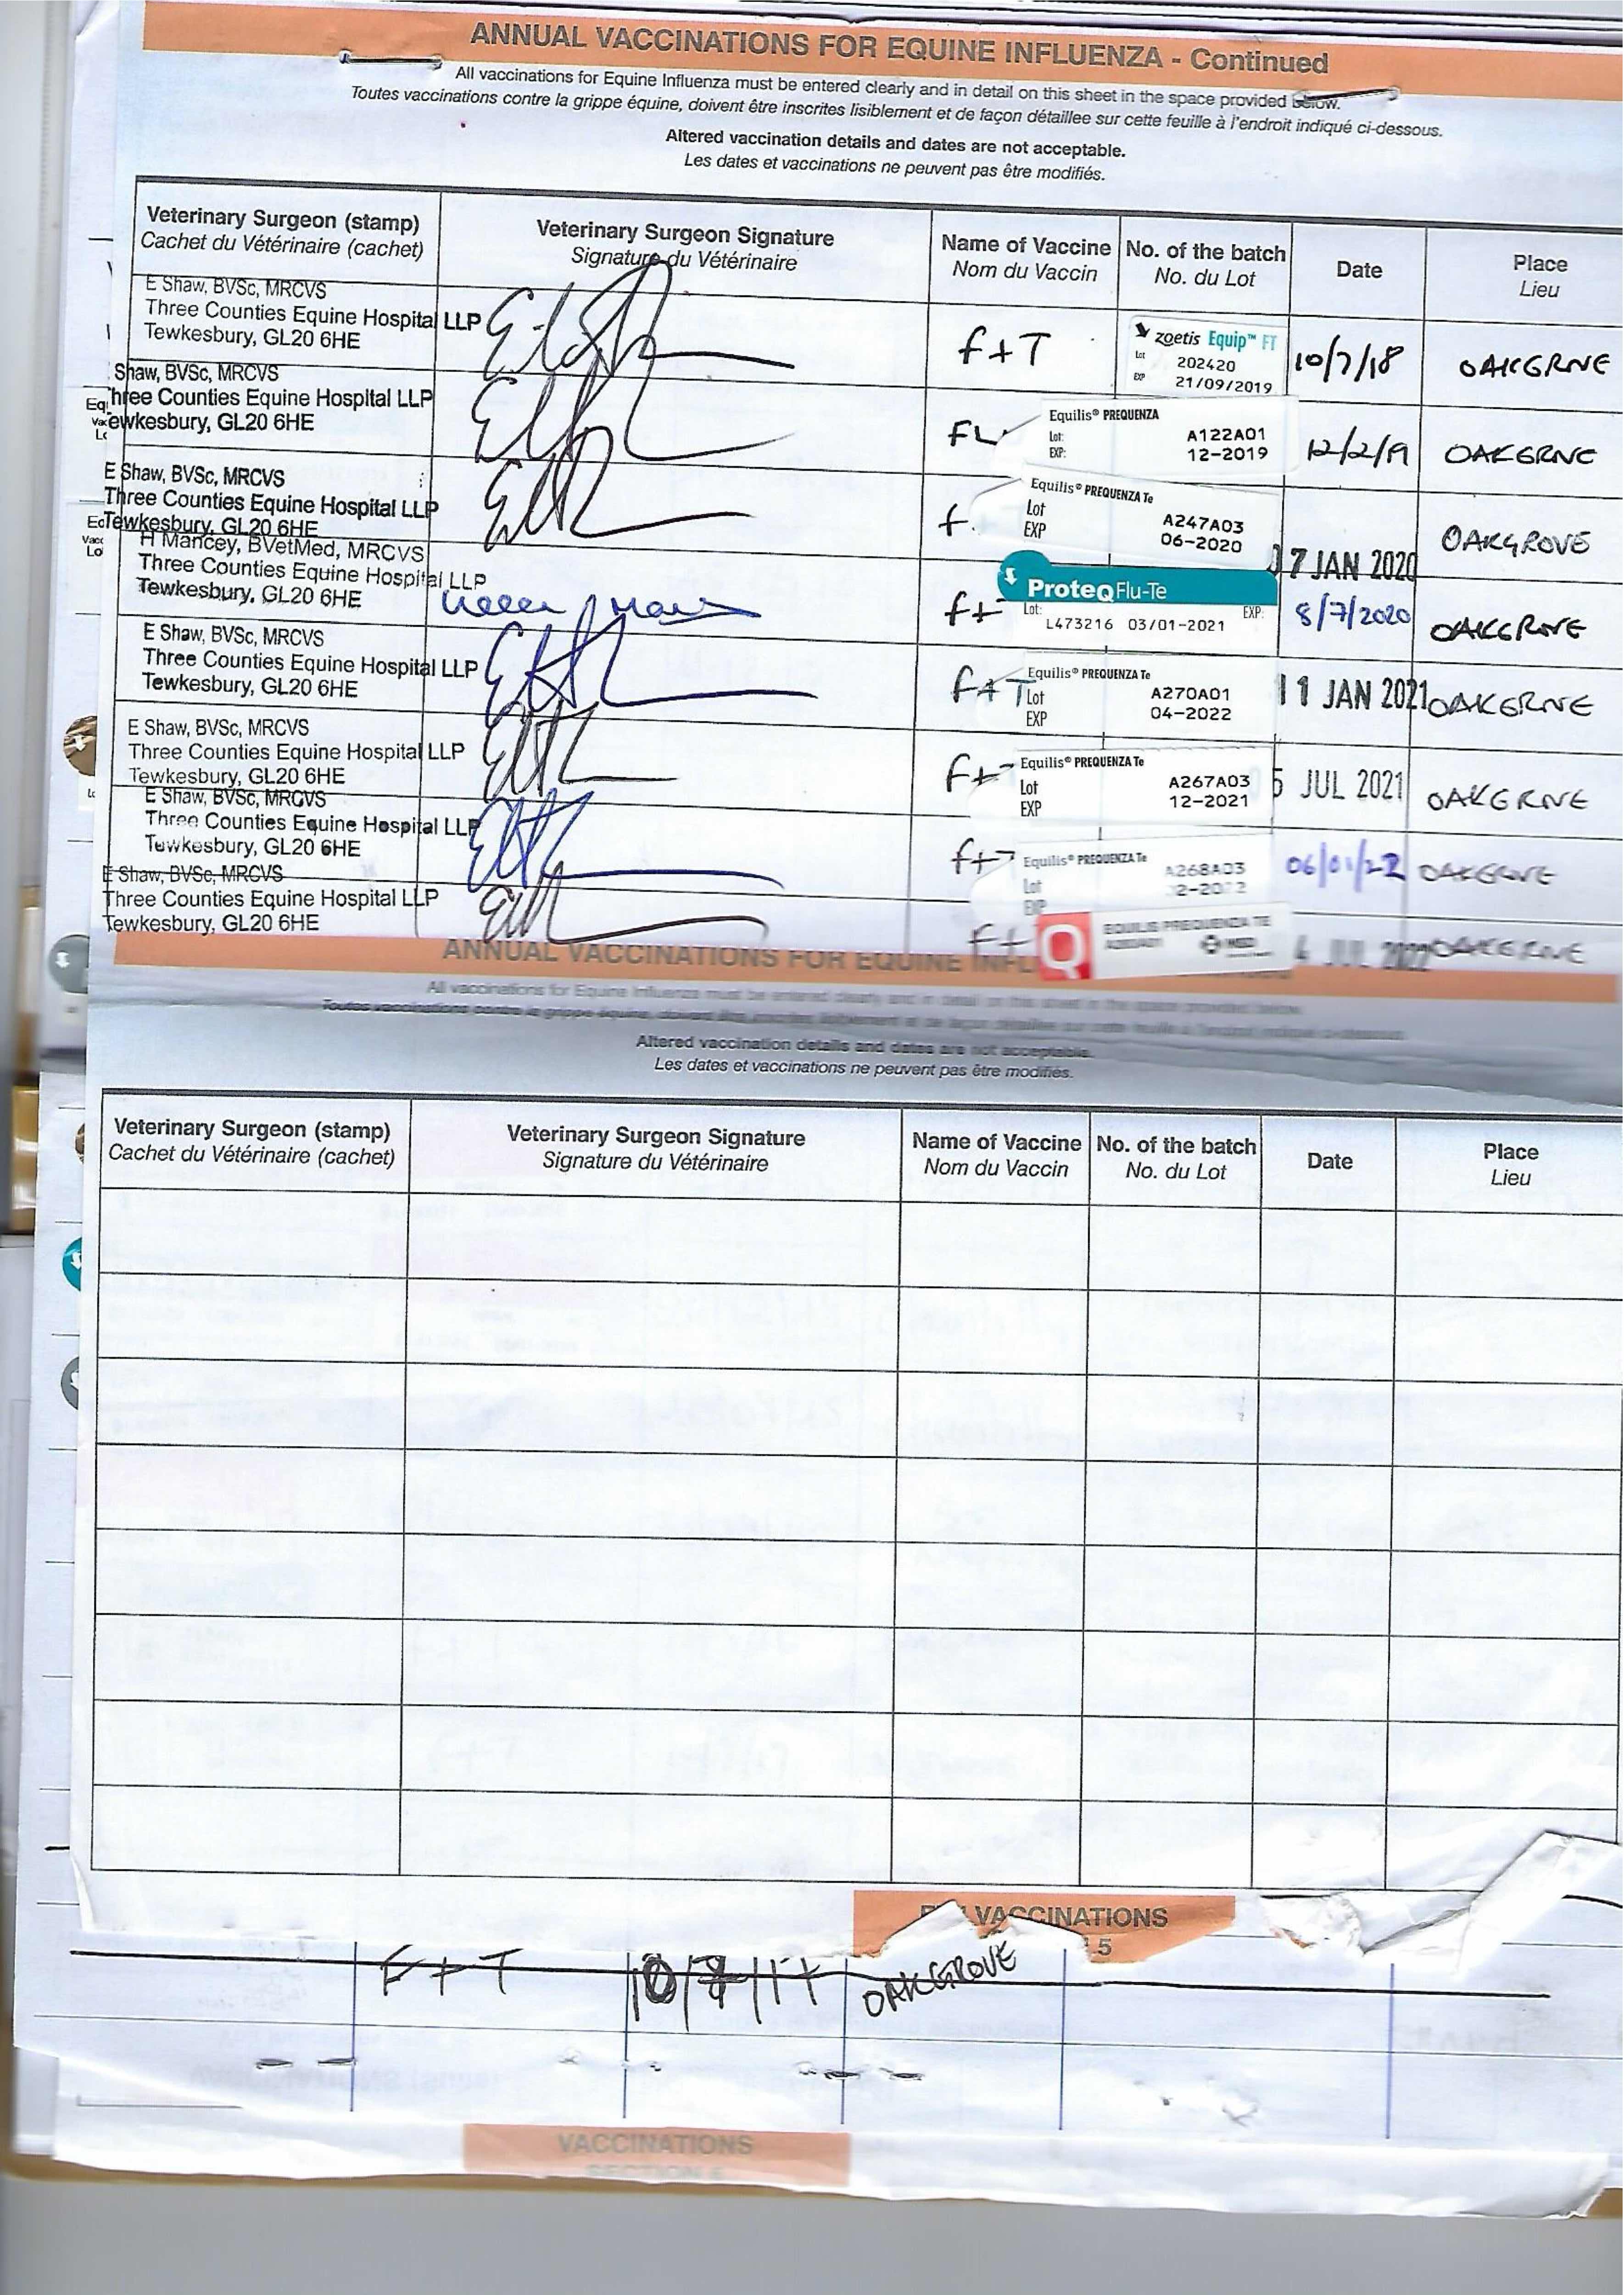 ANNUAL VACCINATIONS FOR EQUINE INFLUENZA - Continued
All vaccinations for Equine Influenza must be entered clearly and in detail on this sheet in the space provided below.
Toutes vaccinations contre la grippe équine, doivent être inscrites lisiblement et de façon détaillee sur cette feuille à l'endroit indiqué ci-dessous.
Altered vaccination details and dates are not acceptable.
Les dates et vaccinations ne peuvent pas être modifiés.
Veterinary Surgeon (stamp) Veterinary Surgeon Signature Name of Vaccine No. of the batch Date Place
Cachet du Vétérinaire (cachet) Signature du Vétérinaire Nom du Vaccin No. du Lot Lieu
E Shaw, BVSc, MRCVS
Three Counties Equine Hospital LLP
Tewkesbury, GL20 6HE
f+T
zoetis Equip™ FT
Lot 202420
EXP 21/09/2019
10/7/18
OAKGROVE
Shaw, BVSc, MRCVS
hree Counties Equine Hospital LLP
ewkesbury, GL20 6HE
FL
Equilis® PREQUENZA
Lot: A122A01
EXP: 12-2019
12/2/19
OAKGROVE
E Shaw, BVSc, MRCVS
Three Counties Equine Hospital LLP
Tewkesbury, GL20 6HE
f
Equilis® PREQUENZA Te
Lot A247A03
EXP 06-2020
07 JAN 2020
OAKGROVE
H Mancey, BVetMed, MRCVS
Three Counties Equine Hospital LLP
Tewkesbury, GL20 6HE
f+
ProteqFlu-Te
Lot: EXP:
L473216 03/01-2021
8/7/2020
OAKGROVE
E Shaw, BVSc, MRCVS
Three Counties Equine Hospital LLP
Tewkesbury, GL20 6HE
f+T
Equilis® PREQUENZA Te
Lot A270A01
EXP 04-2022
11 JAN 2021
OAKGROVE
E Shaw, BVSc, MRCVS
Three Counties Equine Hospital LLP
Tewkesbury, GL20 6HE
f+T
Equilis® PREQUENZA Te
Lot A267A03
EXP 12-2021
5 JUL 2021
OAKGROVE
E Shaw, BVSc, MRCVS
Three Counties Equine Hospital LLP
Tewkesbury, GL20 6HE
f+T
Equilis® PREQUENZA Te
Lot A268A03
EXP
06/01/22
OAKGROVE
E Shaw, BVSc, MRCVS
Three Counties Equine Hospital LLP
Tewkesbury, GL20 6HE
F+
Q
EQUILIS PREQUENZA TE
MSD
4 JUL 2022
OAKGROVE
ANNUAL VACCINATIONS FOR EQUINE INFL
All vaccinations for Equine Influenza must be entered clearly and in detail on this sheet in the space provided below.
Toutes vaccinations contre la grippe équine, doivent être inscrites lisiblement et de façon détaillee sur cette feuille à l'endroit indiqué ci-dessous.
Altered vaccination details and dates are not acceptable.
Les dates et vaccinations ne peuvent pas être modifiés.
Veterinary Surgeon (stamp) Veterinary Surgeon Signature Name of Vaccine No. of the batch Date Place
Cachet du Vétérinaire (cachet) Signature du Vétérinaire Nom du Vaccin No. du Lot Lieu
VACCINATIONS
5
F+T 10/7/17 OAKGROVE
VACCINATIONS